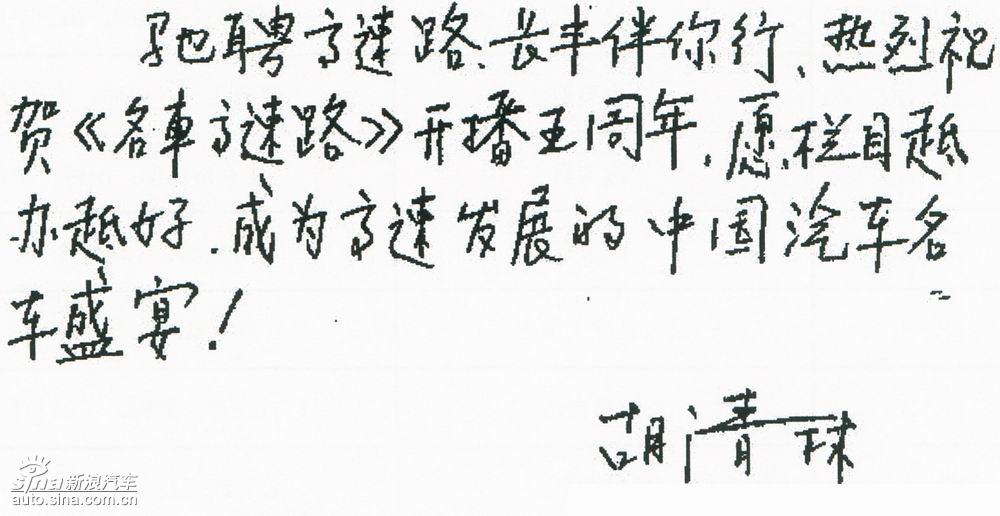 驰聘高速路、长丰伴你行、热烈祝
贺《名車高速路》开播五周年,愿栏目越
办越好,成为高速发展的中国汽车名
车盛宴!
胡清
sina新浪汽车
auto.sina.com.cn